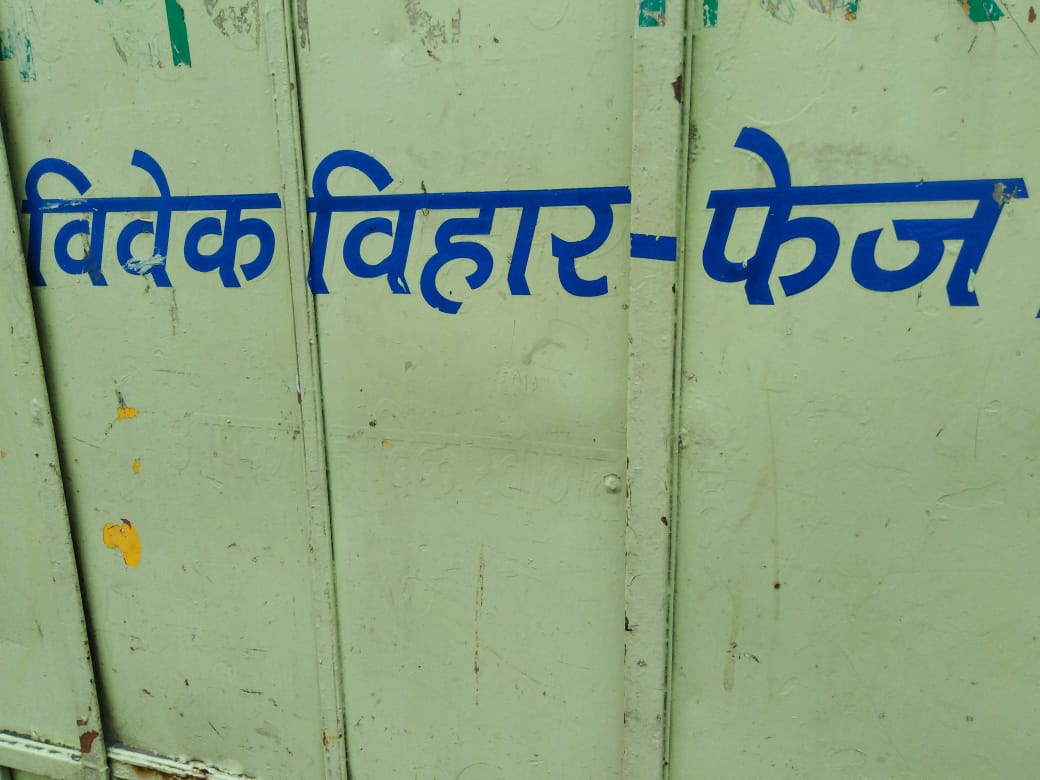 विवेक विहार-फेज